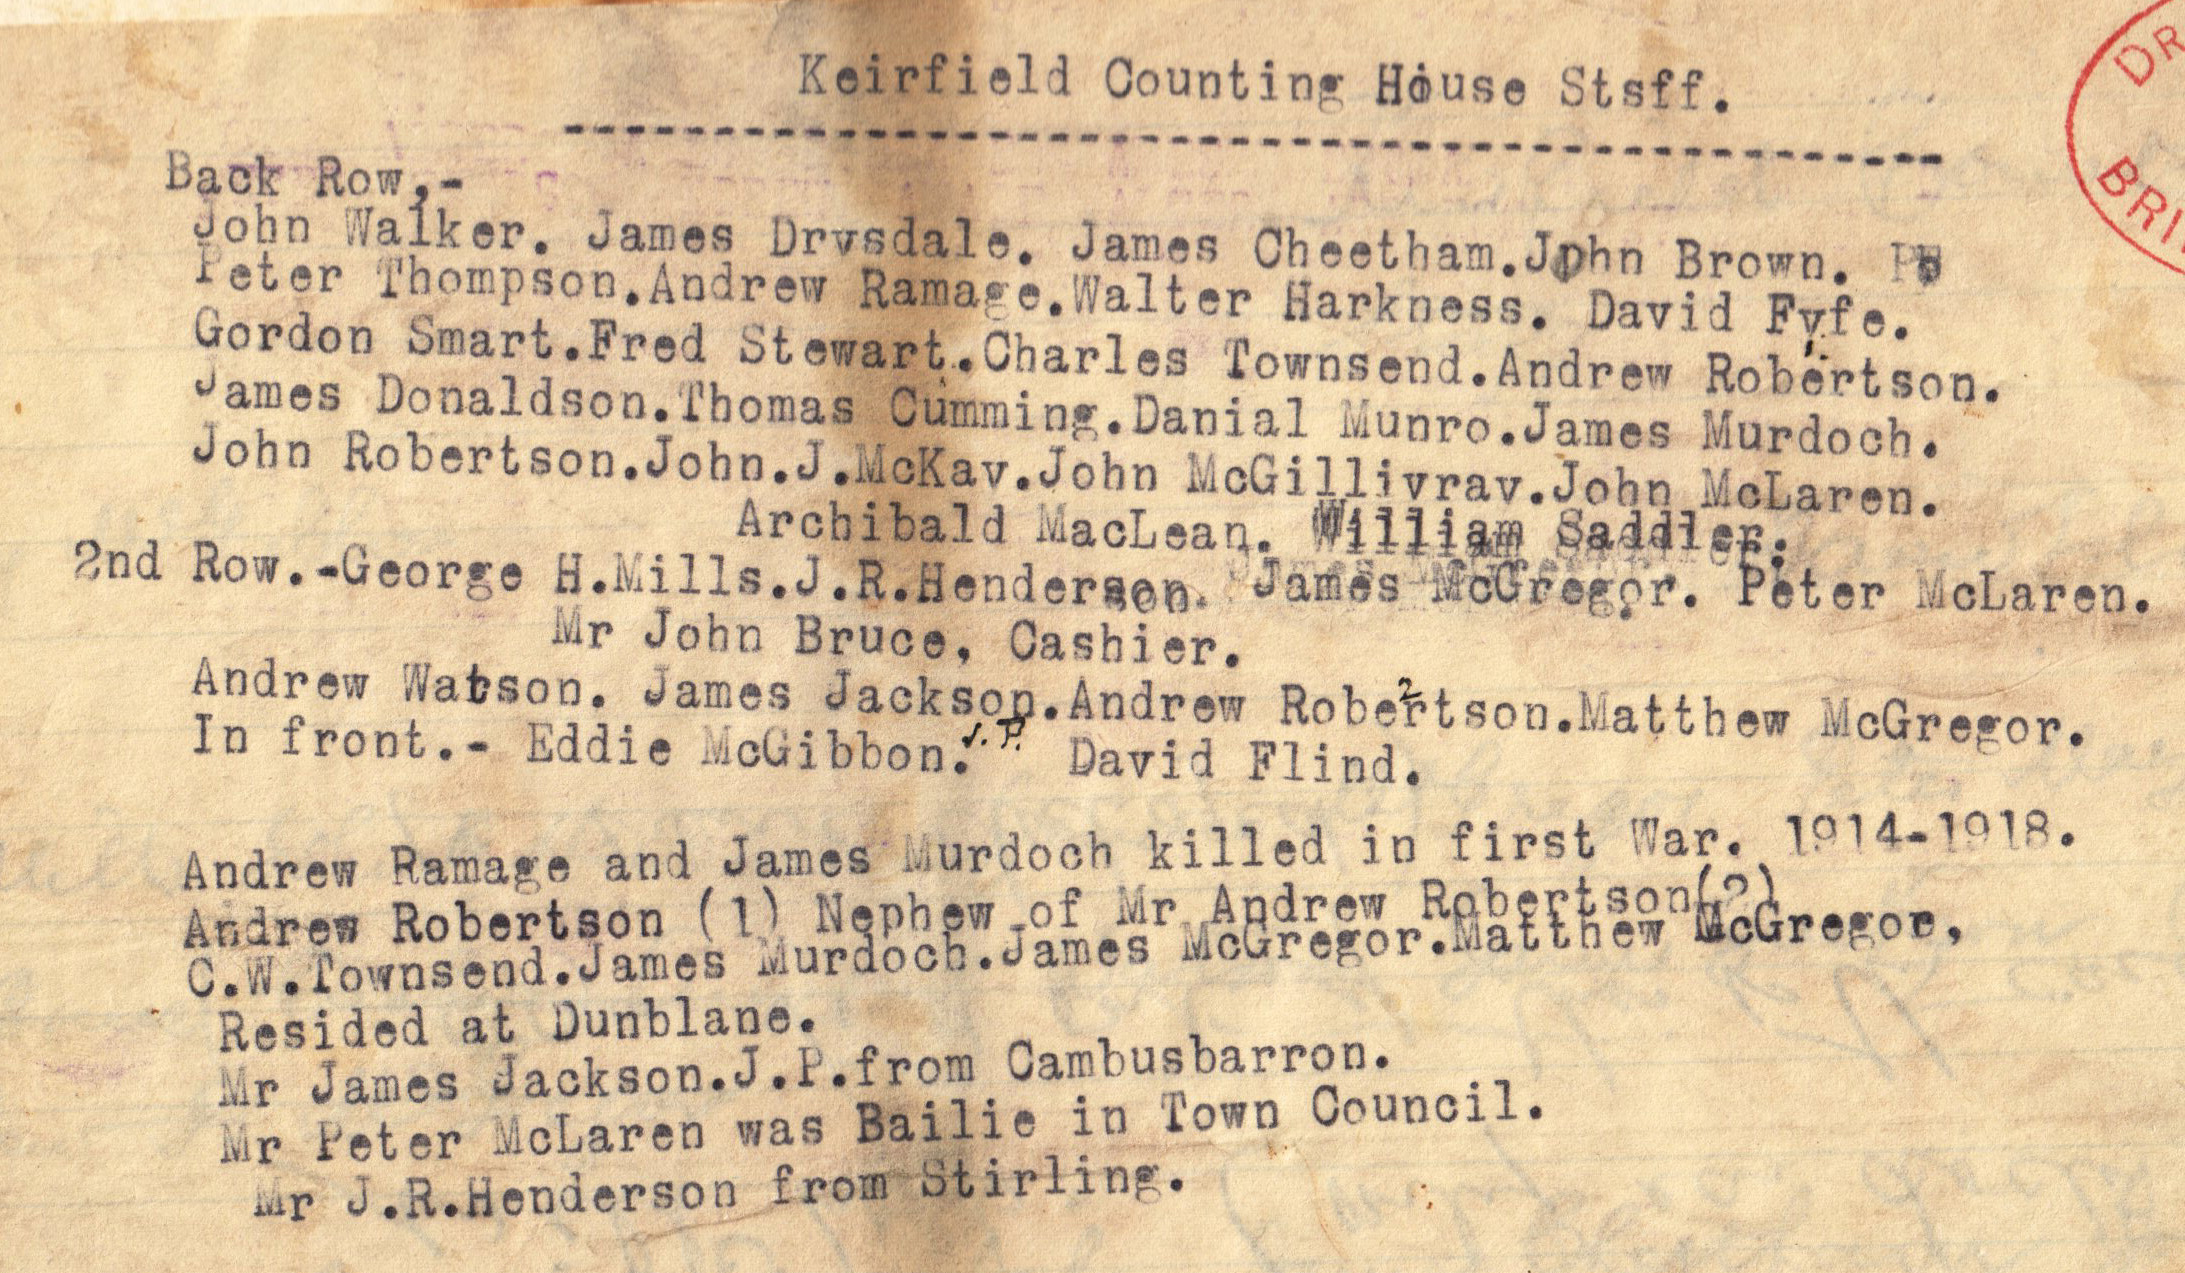 Keirfield Counting House Stsff.
Back Row,-
John Walker. James Drysdale. James Cheetham.John Brown. Pe
Peter Thompson.Andrew Ramage.Walter Harkness. David Fyfe.
Gordon Smart.Fred Stewart.Charles Townsend.Andrew Robertson. 1.
James Donaldson.Thomas Cumming.Danial Munro.James Murdoch.
John Robertson.John.J.McKay.John McGillivray.John McLaren.
Archibald MacLean. William Saddler.
2nd Row.-George H.Mills.J.R.Henderson. James McGregor. Peter McLaren.
Mr John Bruce, Cashier.
Andrew Watson. James Jackson.Andrew Robertson.Matthew McGregor. 2
In front.- Eddie McGibbon. J.P. David Flind.
Andrew Ramage and James Murdoch killed in first War. 1914-1918.
Andrew Robertson (1) Nephew of Mr Andrew Robertson(2)
C.W.Townsend.James Murdoch.James McGregor.Matthew McGregor,
Resided at Dunblane.
Mr James Jackson.J.P.from Cambusbarron.
Mr Peter McLaren was Bailie in Town Council.
Mr J.R.Henderson from Stirling.
DR
BRI